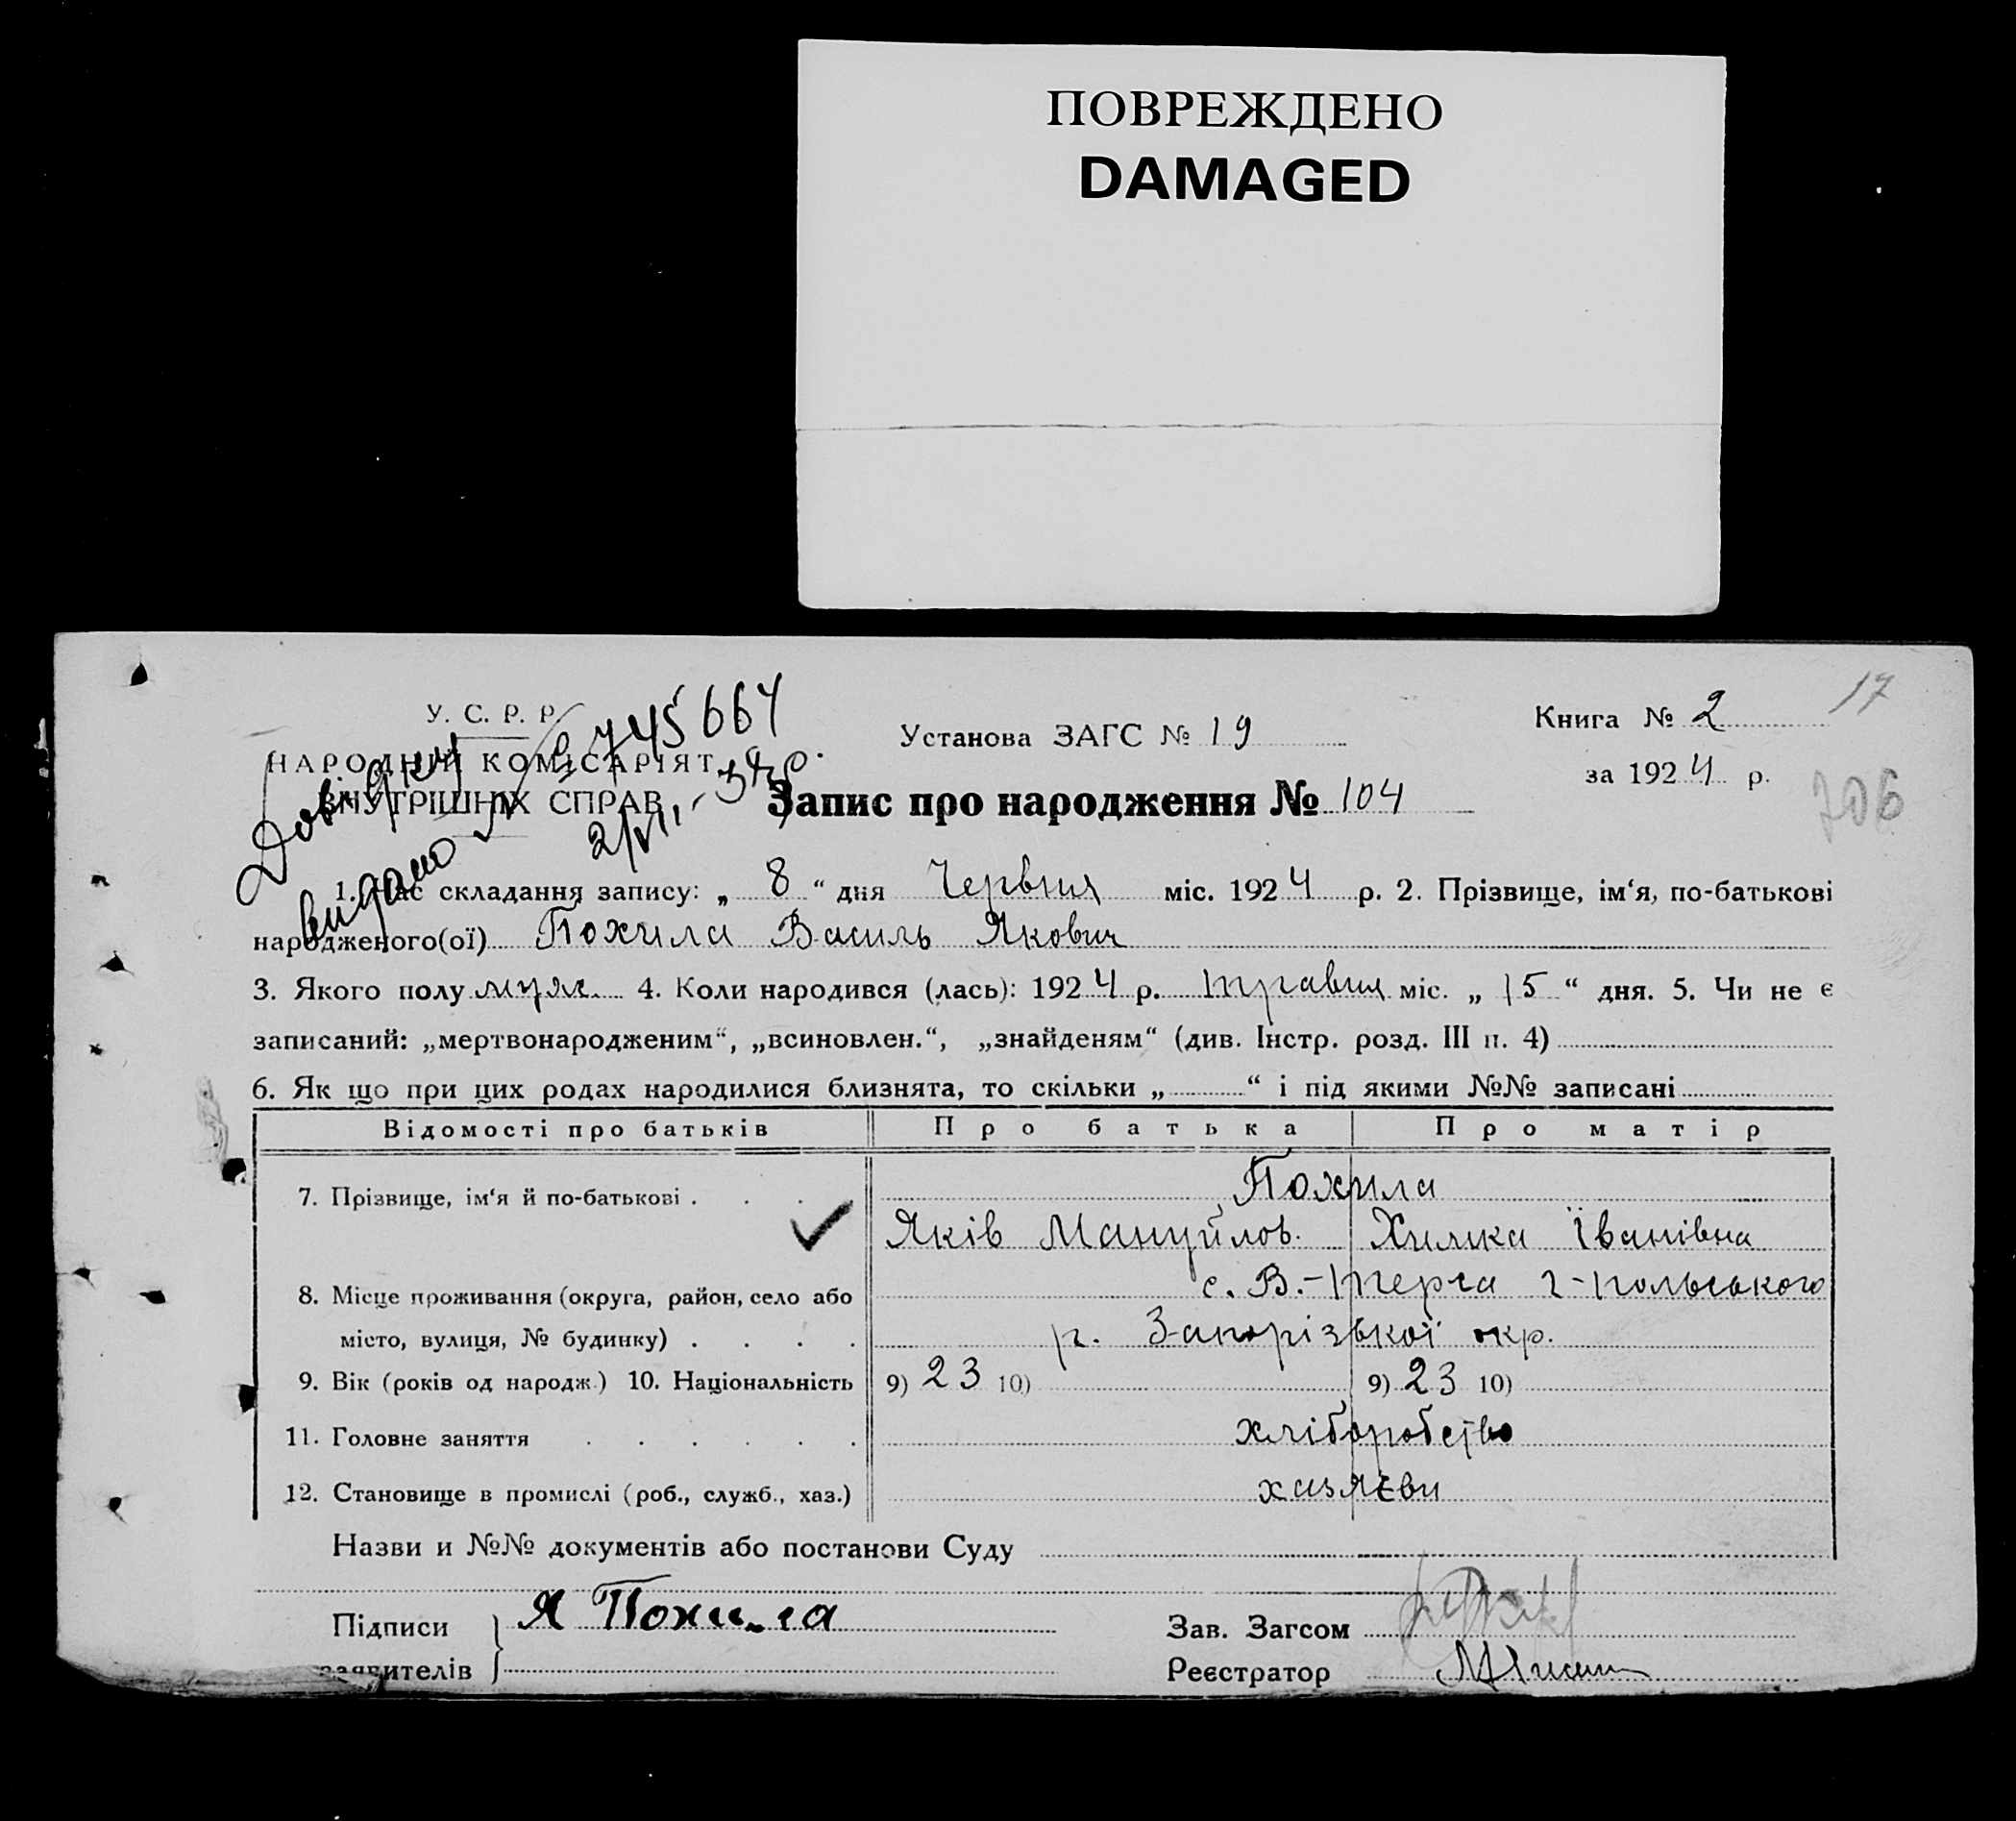 ПОВРЕЖДЕНО
DAMAGED
17
У. С. Р. Р.
НАРОДНІЙ КОМІСАРІЯТ
ВНУТРІШНІХ СПРАВ
Довідку
видано № 745664
Установа ЗАГС № 19
Книга № 2
за 1924 р.
706
Запис про народження № 104
1. Час складання запису: „ 8 “ дня Червня міс. 1924 р. 2. Прізвище, ім‘я, по-батькові
народженого(ої) Похила Василь Якович
3. Якого полу муж. 4. Коли народився (лась): 1924 р. травня міс. „ 15 “ дня. 5. Чи не є
записаний: „мертвонародженим“, „всиновлен.“, „знайденям“ (див. Інстр. розд. III п. 4)
6. Як що при цих родах народилися близнята, то скільки „ “ і під якими №№ записані
Відомості про батьків Про батька Про матір
7. Прізвище, ім‘я й по-батькові . . . Похила
Яків Мануйлов. Химка Іванівна
8. Місце проживання (округа, район, село або с. В.-Терса г-польського
місто, вулиця, № будинку) . . . . р. Запорізької окр.
9. Вік (років од народж.) 10. Національність 9) 23 10) 9) 23 10)
11. Головне заняття . . . . . . хліборобство
12. Становище в промислі (роб., служб., хаз.) хазяєви
Назви и №№ документів або постанови Суду
Підписи Я Похила Зав. Загсом
заявителів Реєстратор